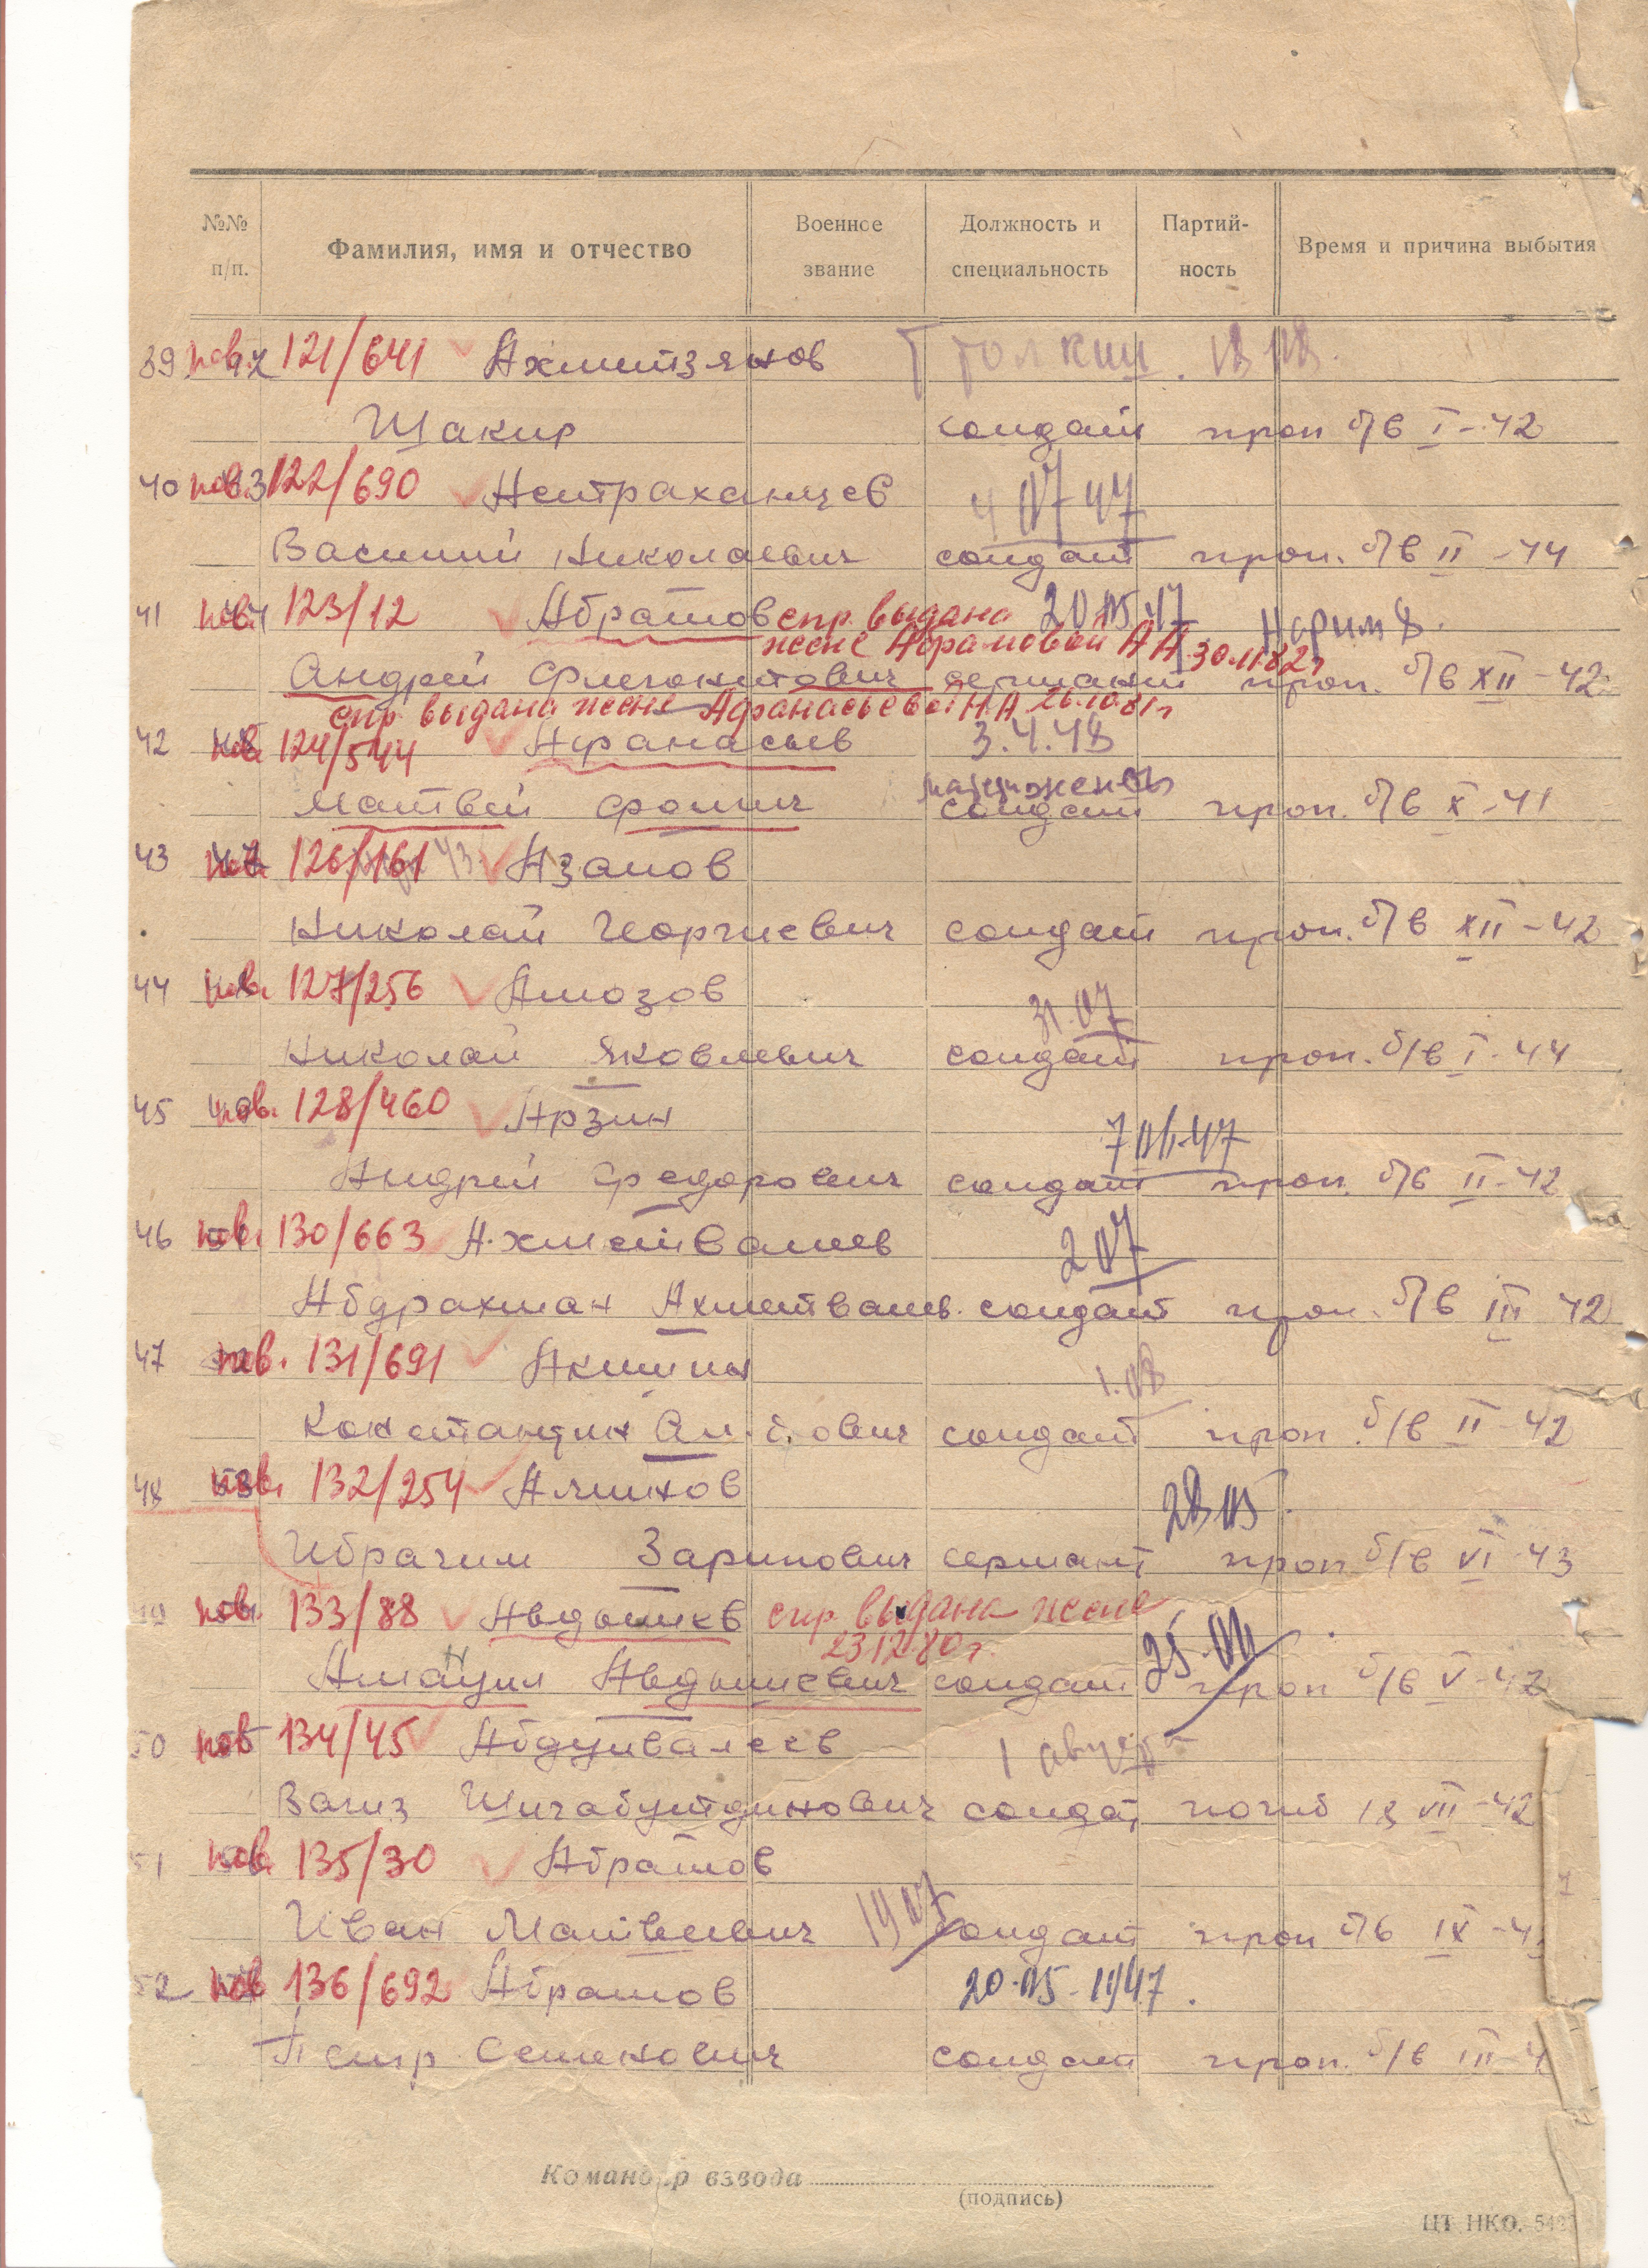 №№ п/п. Фамилия, имя и отчество Военное звание Должность и специальность Партий-ность Время и причина выбытия
39 пов. 121/641 Ахметзянов
Шакир солдат проп б/в I-42
40 пов. 122/690 Астраханцев 4 07 47
Василий Николаевич солдат проп. б/в II-44
41 пов. 123/12 Абрамов спр. выдана 20 05 47
жене Абрамовой А А 30.11.82г
Андрей Флегонтович сержант проп. б/в XII-42
спр. выдана жене Афанасьевой Н.А 26.10.81г
42 пов. 124/544 Афанасьев 3.4.48
Матвей Фомич солдат проп. б/в X-41
43 пов. 126/161 Азанов
Николай Георгиевич солдат проп. б/в XII-42
44 пов. 127/256 Амозов 31.07
Николай Яковлевич солдат проп. б/в I-44
45 пов. 128/460 Арзин
Андрей Федорович солдат проп. б/в II-42
46 пов. 130/663 Ахметвалиев 2 07
Абдрахман Ахметвалив. солдат проп. б/в III 42
47 пов. 131/691 Акишин 1.08
Константин солдат проп. б/в II-42
48 пов. 132/254 28 05.
Ибрагим Зарипович сержант проп б/в VI-43
пов. 133/88 спр выдана жене
23.12.80г.
солдат проп б/в V-42
50 пов 134/45 Абдулвалеев 1 августа
Вагиз Шигабутдинович солдат погиб 18 VII-42
51 пов. 135/30 Абрамов
Иван Матвеевич 19 07 солдат проп б/в IX-4
52 пов 136/692 Абрамов 20.05-1947.
Петр Семенович солдат проп. б/в III-4
Командир взвода
(подпись)
ЦТ НКО. 542